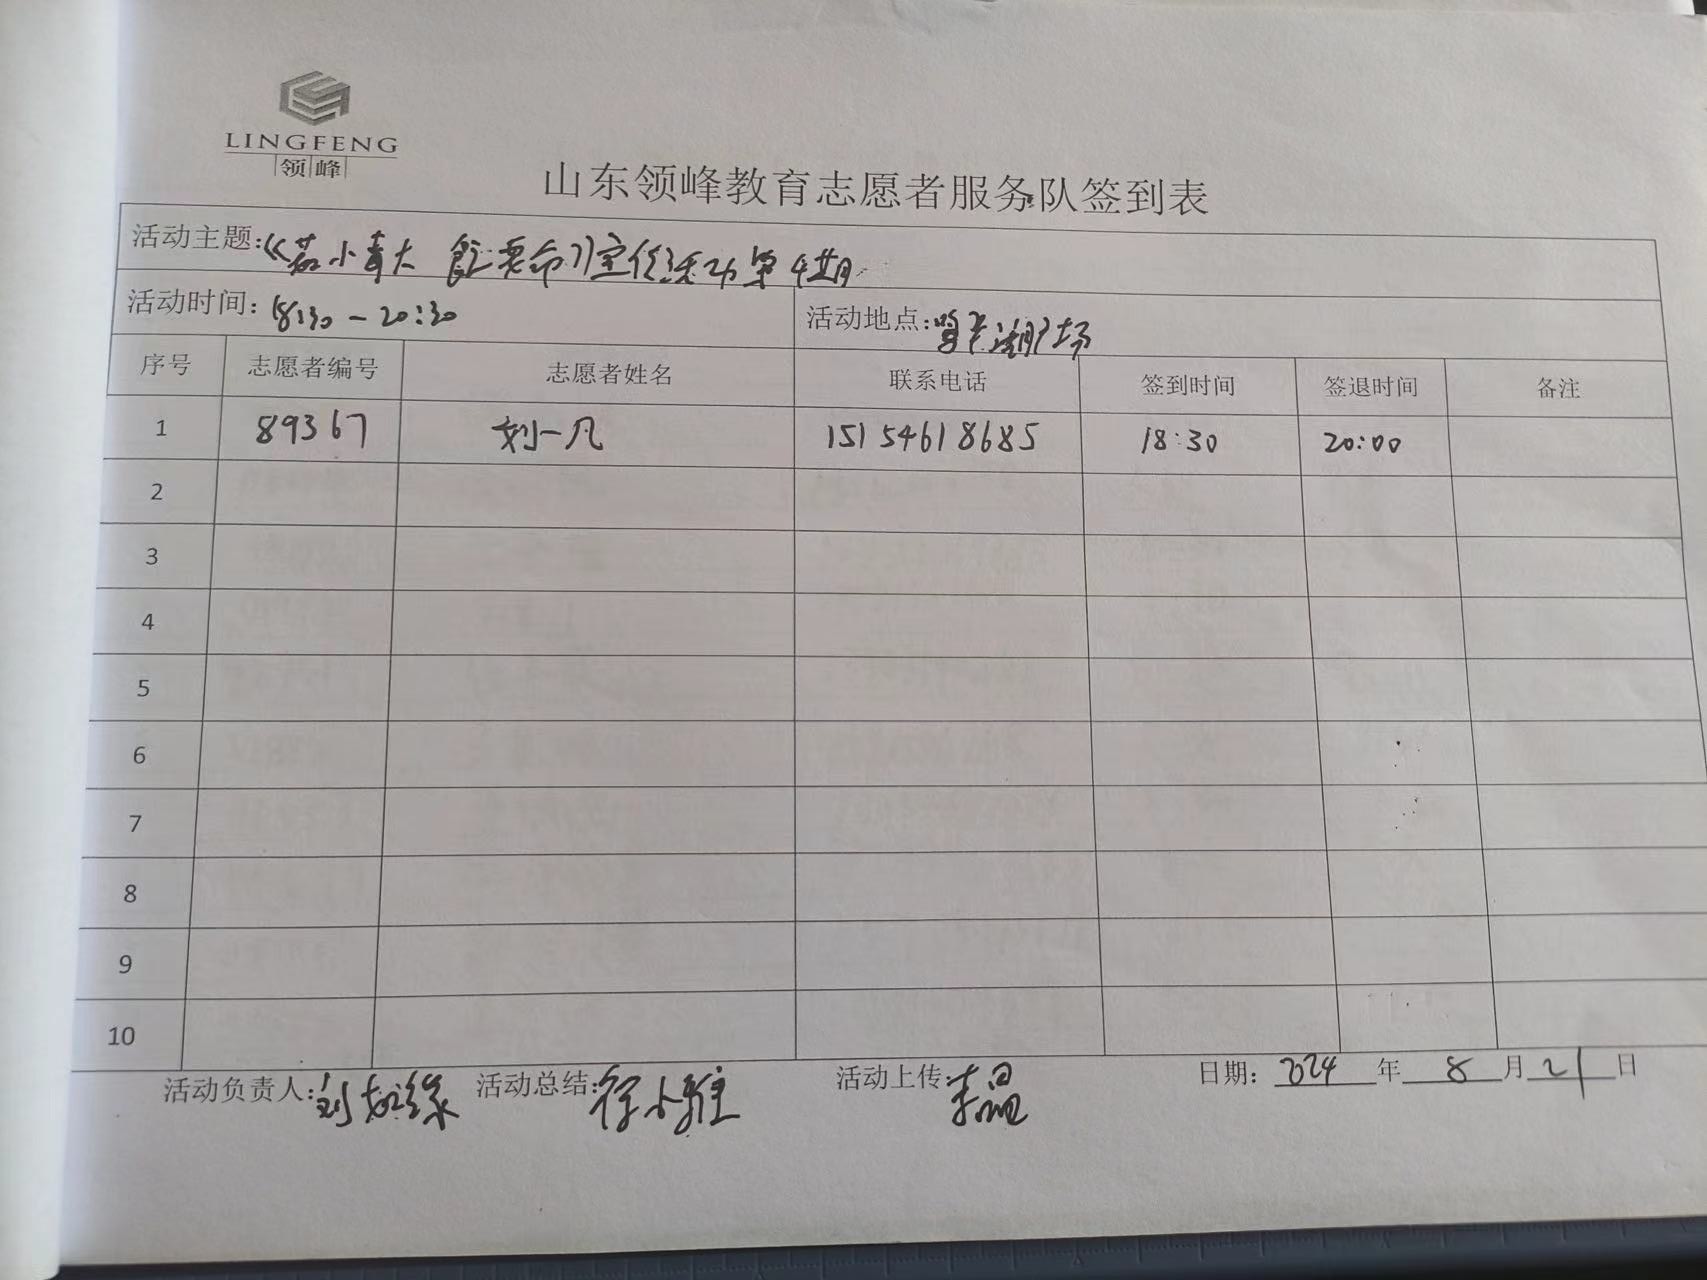 LINGFENG
领峰
山东领峰教育志愿者服务队签到表
活动主题:《菇小毒大 能要命》宣传活动第4期
活动时间: 18:30-20:30 活动地点: 广场
序号 志愿者编号 志愿者姓名 联系电话 签到时间 签退时间 备注
1 89367 刘一凡 15154618685 18:30 20:00
2
3
4
5
6
7
8
9
10
活动负责人: 刘 活动总结: 徐小雅 活动上传: 李晶 日期: 2024 年 8 月 21 日